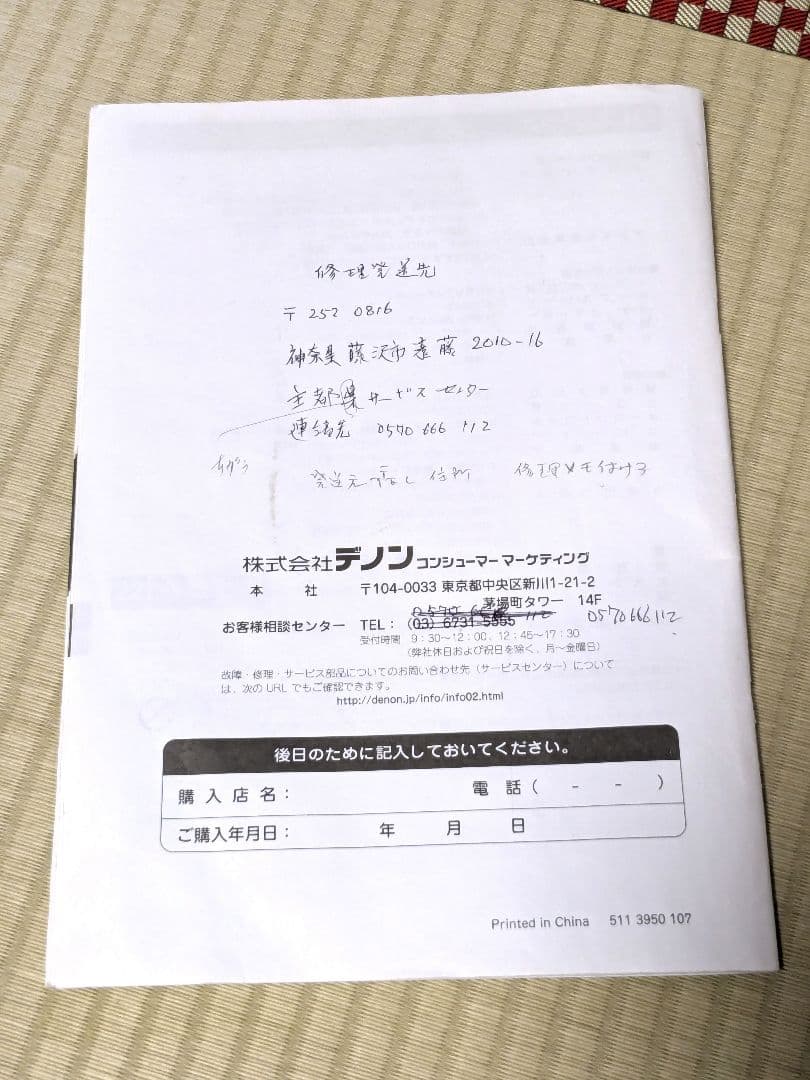 修理発送先
〒252 0816
神奈県 藤沢市 遠藤 2010-16
主都県サービスセンター
連絡先 0570 666 112
ちがう
発送元 住所 修理メモ付ける
株式会社デノン コンシューマー マーケティング
本 社 〒104-0033 東京都中央区新川1-21-2
茅場町タワー 14F
0570 112
お客様相談センター TEL：(03) 6731-5555 0570 666 112
受付時間 9：30～12：00、12：45～17：30
（弊社休日および祝日を除く、月～金曜日）
故障・修理・サービス部品についてのお問い合わせ先（サービスセンター）について
は、次の URL でもご確認できます。
http://denon.jp/info/info02.html
後日のために記入しておいてください。
購 入 店 名： 電 話（ － － ）
ご購入年月日： 年 月 日
Printed in China 511 3950 107